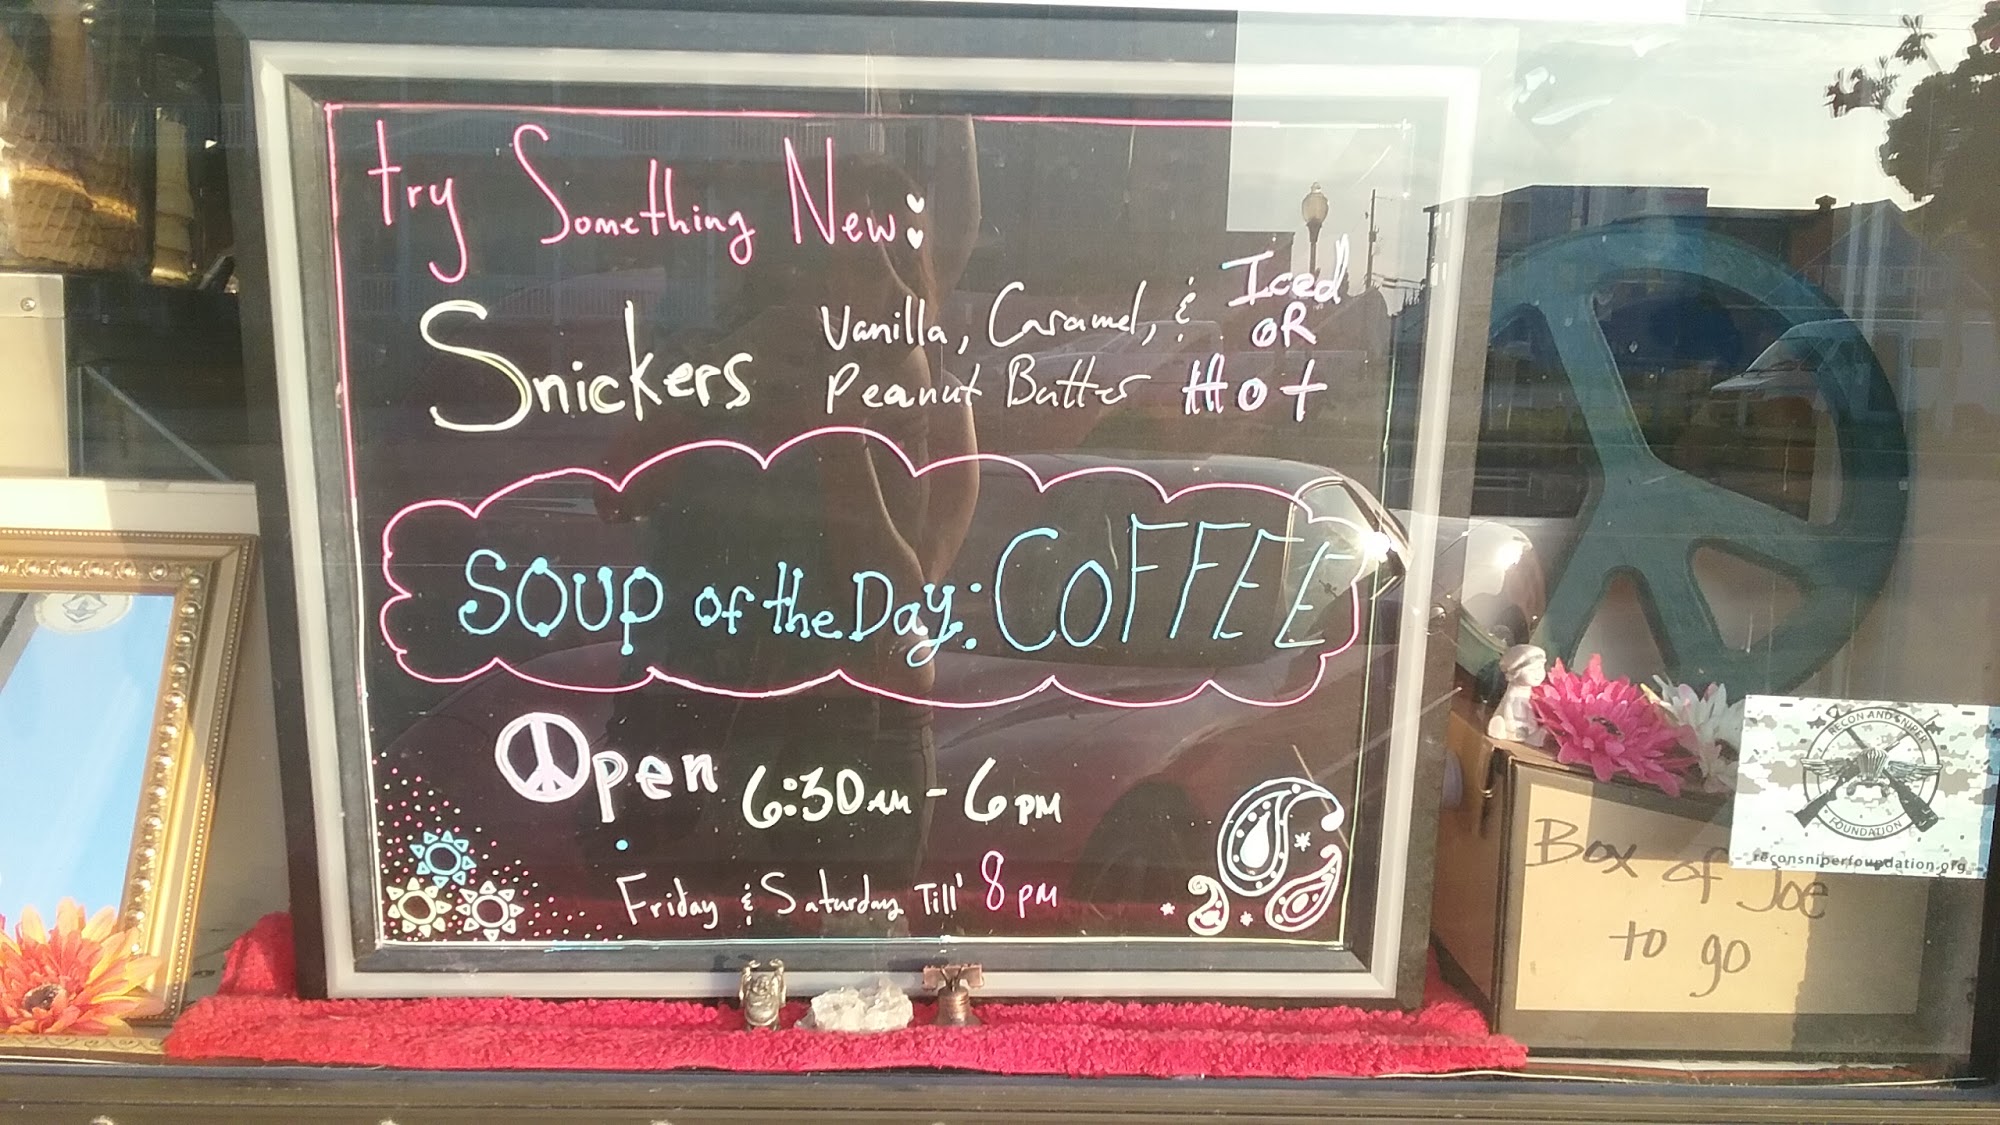 try Something New:
Snickers
Vanilla, Caramel, &
Peanut Butter
Iced
OR
Hot
SOUP of the Day: COFFEE
Open 6:30AM - 6PM
Friday & Saturday Till' 8PM
Box of Joe
to go
RECON AND SNIPER
FOUNDATION
reconsniperfoundation.org